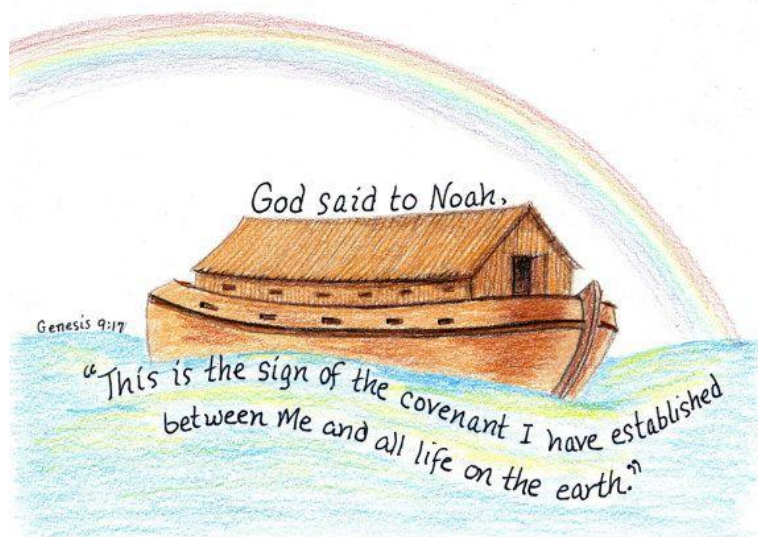 God said to Noah,
Genesis 9:17
“This is the sign of the covenant I have established
between Me and all life on the earth.”